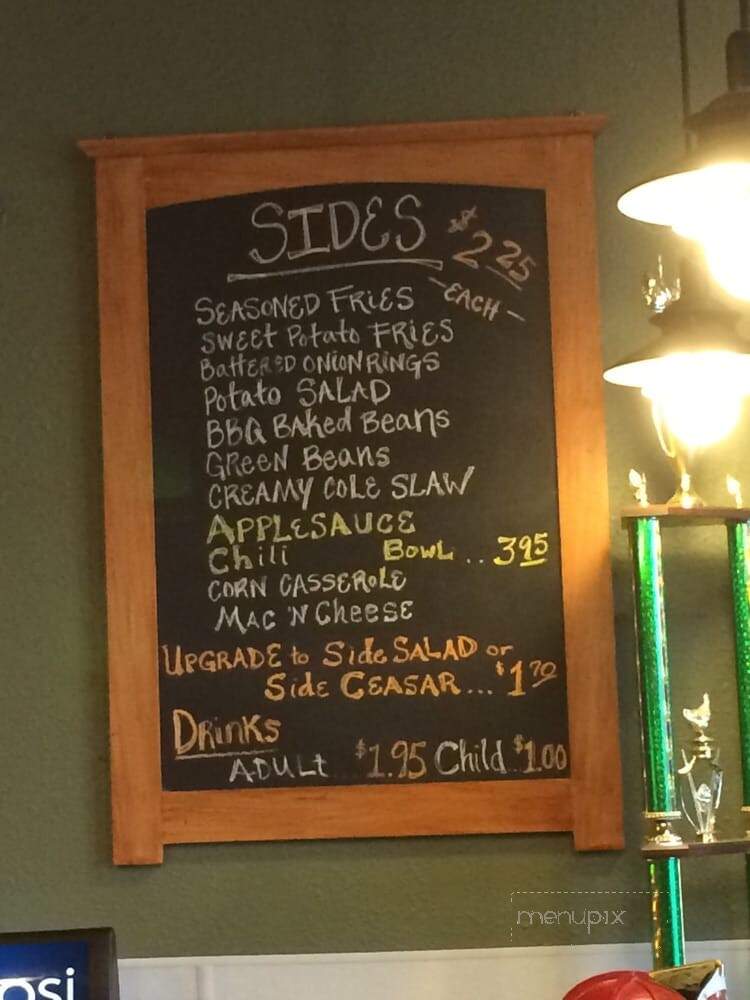 SIDES $2.25
-EACH-
SEASONED FRIES
SWEET Potato FRIES
BattERED ONION RINGS
Potato SALAD
BBQ BAKed Beans
GREEN Beans
CREAMY COLE SLAW
APPLESAUCE
Chili BOWL .. 3.95
CORN CASSEROLE
MAC 'N Cheese
UPGRADE to Side SALAD or
Side CEASAR... $1.70
DRINKS
ADULt $1.95 Child $1.00
menupix
osi